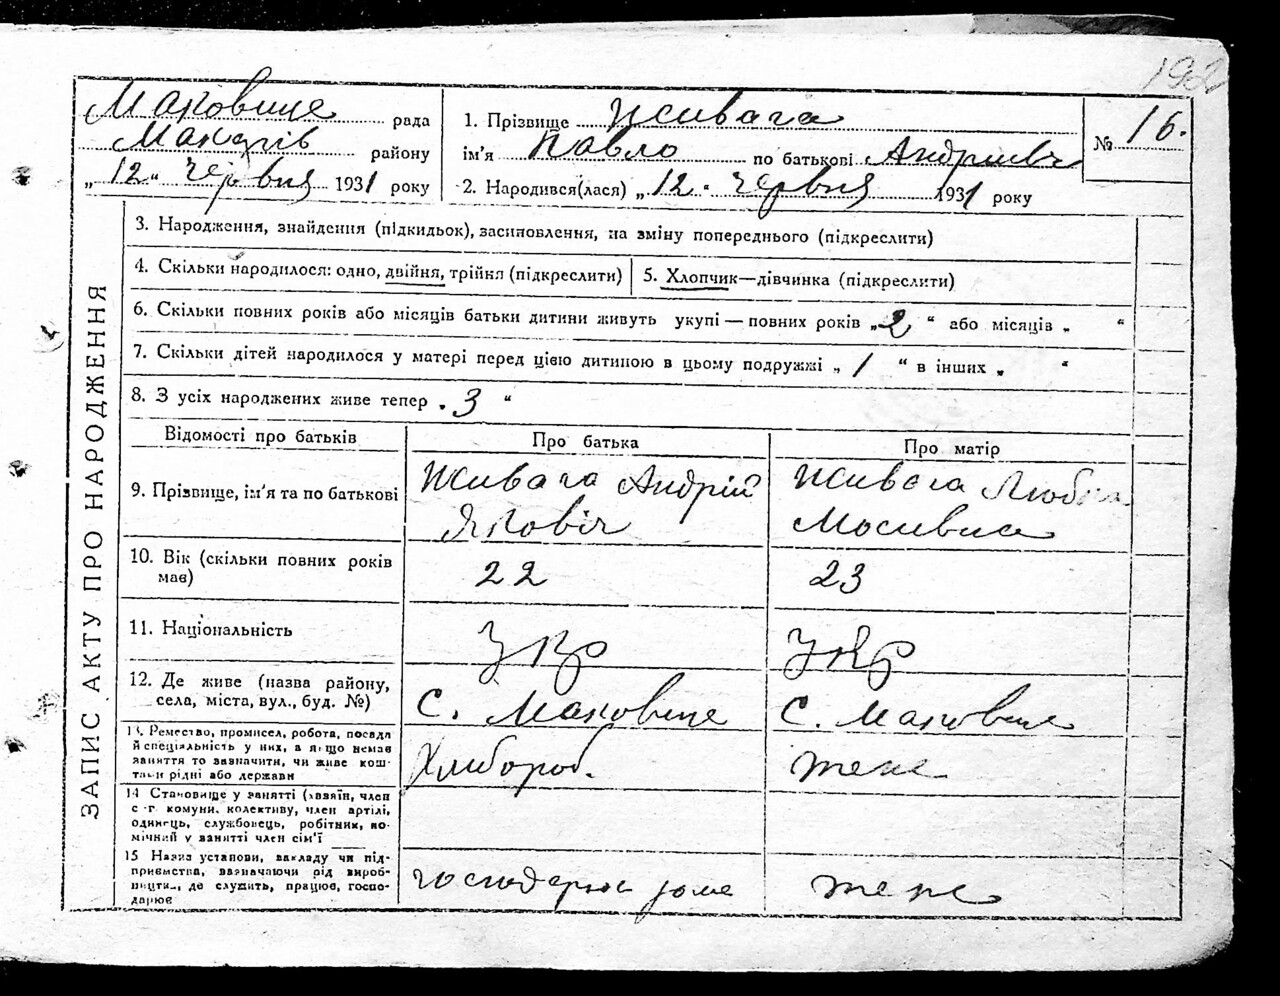 192
Маковище рада
Макарів району
„12" червня 1931 року
1. Прізвище Живага
ім'я Павло по батькові Андрієвіч
2. Народився(лася) „12" червня 1931 року
№ 16.
ЗАПИС АКТУ ПРО НАРОДЖЕННЯ
3. Народження, знайдення (підкидьок), засиновлення, на зміну попереднього (підкреслити)
4. Скільки народилося: одно, двійня, трійня (підкреслити)
5. Хлопчик—дівчинка (підкреслити)
6. Скільки повних років або місяців батьки дитини живуть укупі — повних років „2" або місяців „ "
7. Скільки дітей народилося у матері перед цією дитиною в цьому подружжі „1" в інших „ "
8. З усіх народжених живе тепер „3"
Відомості про батьків
Про батька
Про матір
9. Прізвище, ім'я та по батькові
Живага Андрій
Яковіч
Живага Любка
10. Вік (скільки повних років
має)
22
23
11. Національність
Укр
Укр
12. Де живе (назва району,
села, міста, вул., буд. №)
С. Маковище
С. Маковище
13. Ремество, промисел, робота, посада
й спеціальність у них, а якщо немає
заняття то зазначити, чи живе кош-
тами рідні або держави
Хлибороб.
14 Становище у занятті (хазяїн, член
с.-г. комуни, колективу, член артілі,
одинець, службовець, робітник, по-
мічний у занятті член сім'ї
15 Назва установи, закладу чи під-
приємства, зазначаючи рід вироб-
ництва, де служить, працює, госпо-
дарює